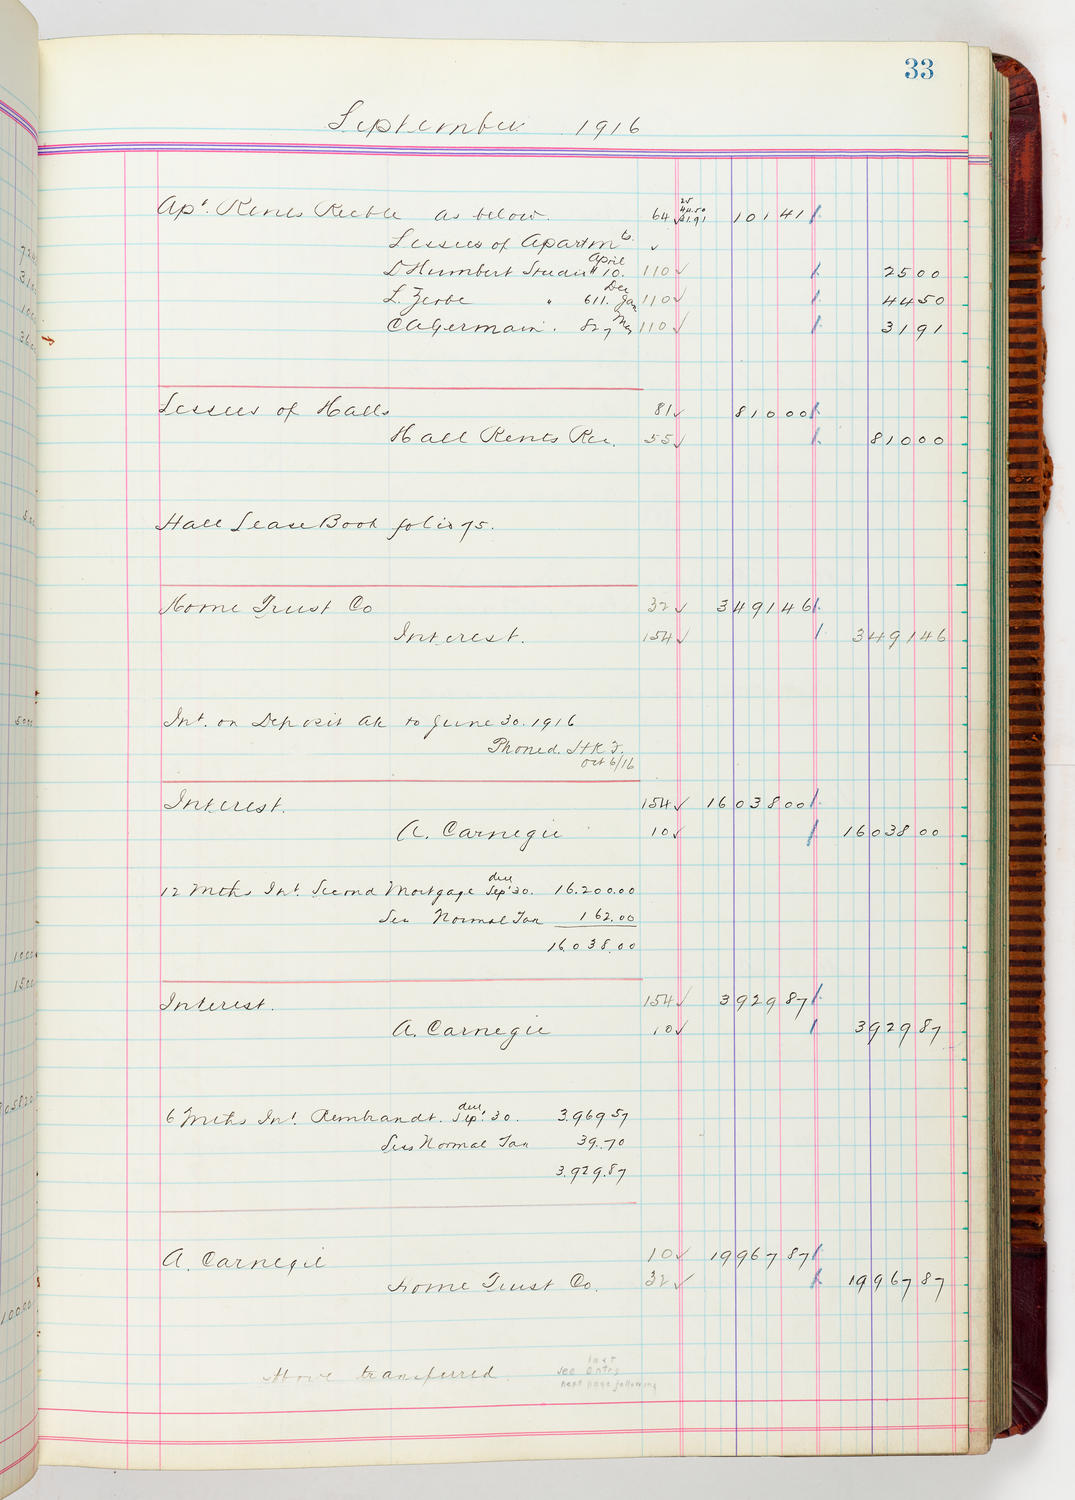 33
September 1916
Apt. Rents Rec'ble as below. 64 25 44.50 31.91 101 41
Lessees of Apartmts.
D Humbert Studio # 10. April 110 25 00
L. Zerbe " 611. Dec Jan 110 44 50
C A Germain. 827 May 110 31 91
Lessees of Halls 81 810 00
Hall Rents Rec. 55 810 00
Hall Lease Book folio 75.
Home Trust Co 32 3491 46
Interest. 154 3491 46
Int. on Deposit a/c to June 30. 1916
Phoned. H K F.
Oct 6/16
Interest. 154 16038 00
A. Carnegie 10 16038 00
12 Mths Int Second Mortgage due Sept 30. 16.200.00
Less Normal Tax 162.00
16.038.00
Interest. 154 3929 87
A. Carnegie 10 3929 87
6 Mths Int. Rembrandt. due Sept. 30. 3.969.57
Less Normal Tax 39.70
3.929.87
A. Carnegie 10 19967 87
Home Trust Co. 32 19967 87
Above transferred. see last entry
next page following